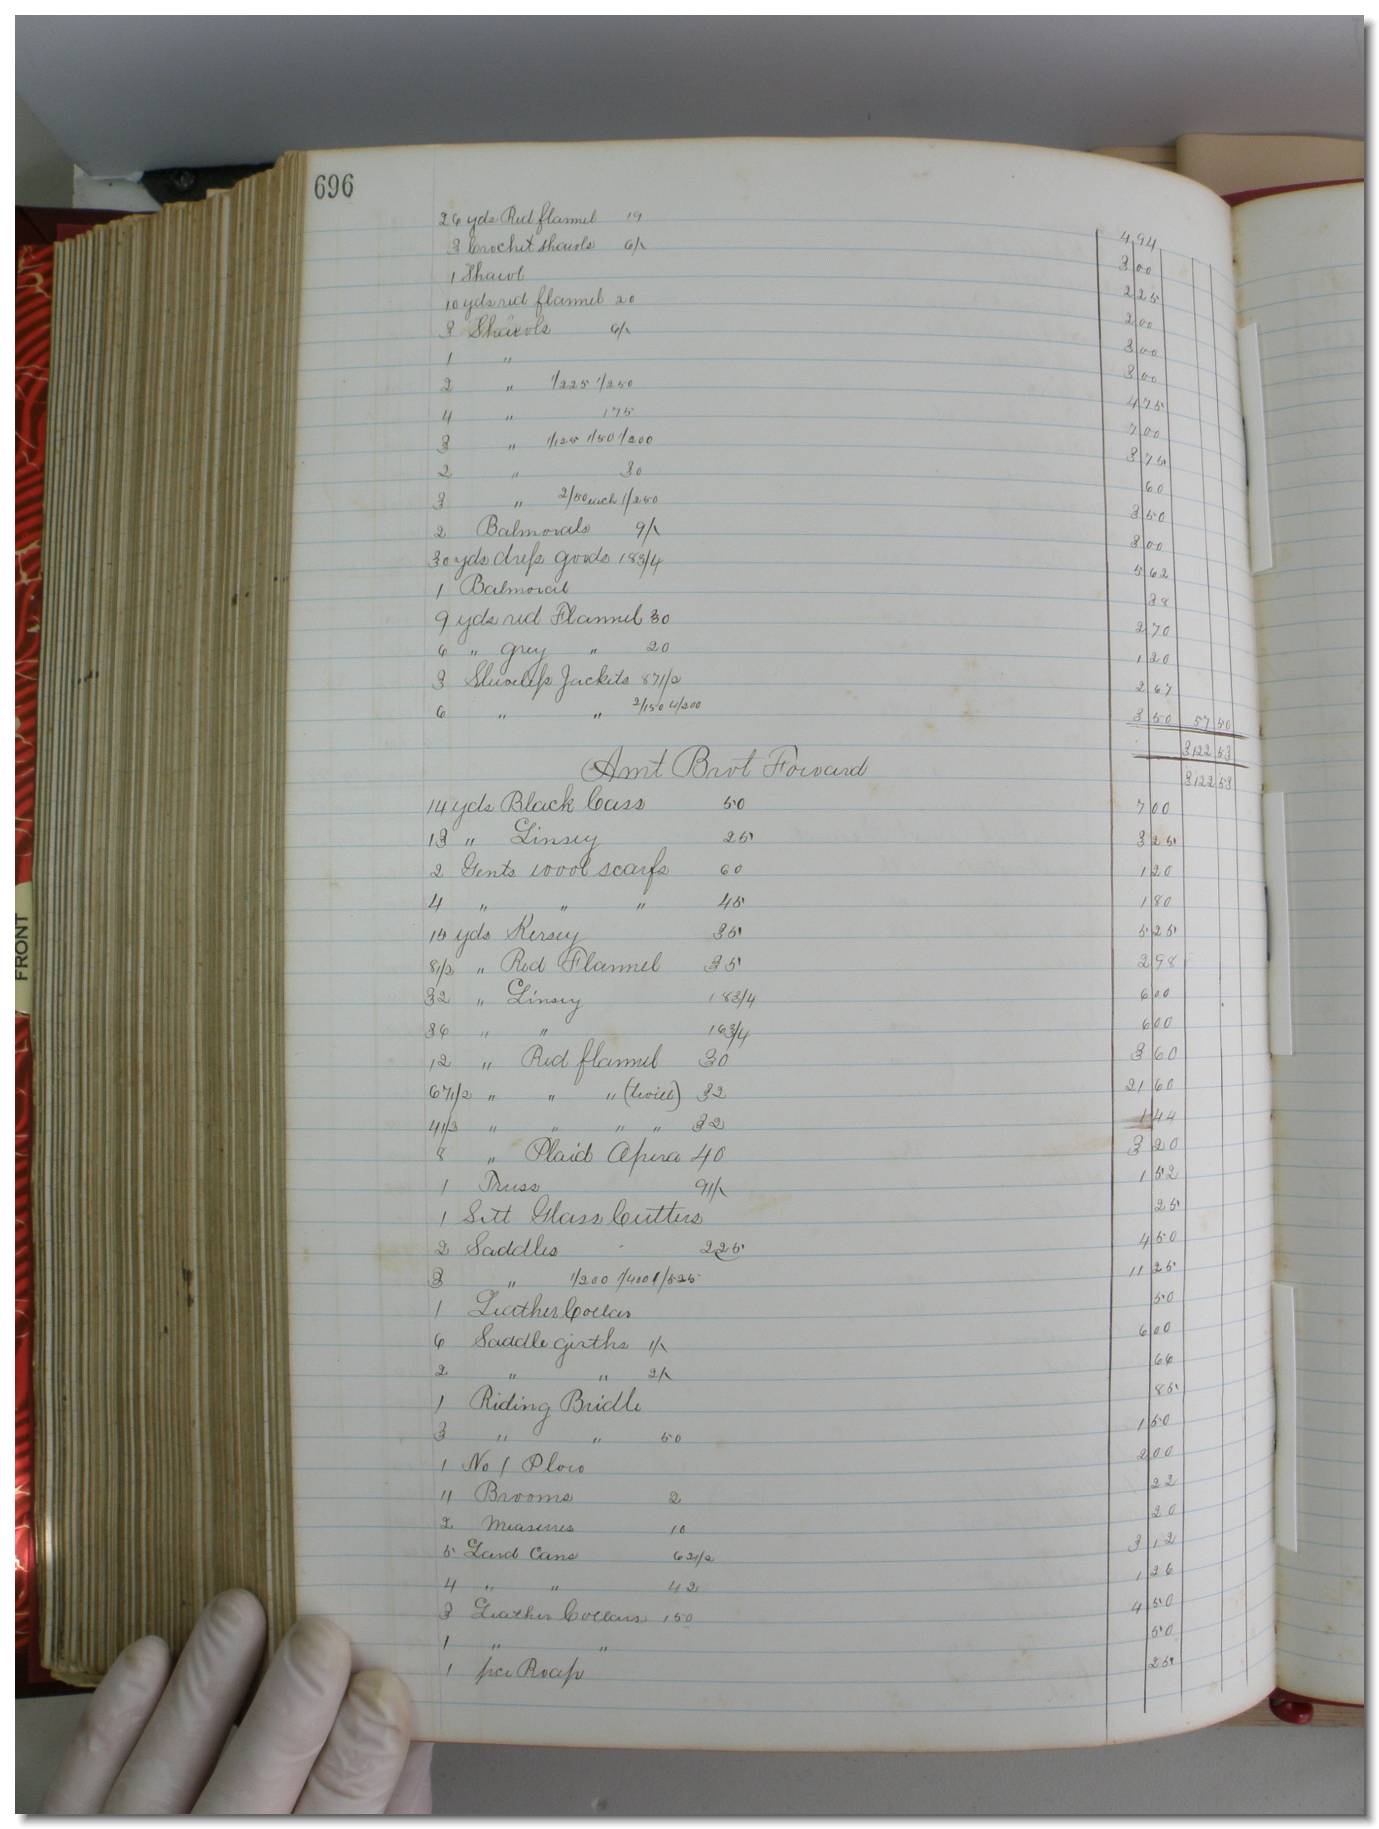 696
26 yds Red flannel 19 4 94
3 Crochet shawls 6/ 3 00
1 Shawl 2 25
10 yds red flannel 20 2 00
3 Shawls 6/ 3 00
1 " 3 00
2 " 1/225 1/250 4 75
4 " 175 7 00
3 " 1/125 1/50 1/200 3 75
2 " 30 60
3 " 2/50 each 1/250 3 50
2 Balmorals 9/ 3 00
30 yds dress goods 18 3/4 5 62
1 Balmoral 38
9 yds red Flannel 30 2 70
6 " grey " 20 1 20
3 Sleeveless Jackets 87 1/2 2 67
6 " " 2/150 4/200 3 50 57 50
3122 53
Amt Brot Forward 3122 53
14 yds Black Cass 50 7 00
13 " Linsey 25 3 25
2 Gents wool scarfs 60 1 20
4 " " " 45 1 80
15 yds Kersey 35 5 25
8 1/2 " Red Flannel 35 2 98
32 " Linsey 18 3/4 6 00
36 " " 16 3/4 6 00
12 " Red flannel 30 3 60
67 1/2 " " " (twill) 32 21 60
4 1/3 " " " " 32 1 44
8 " Plaid Opera 40 3 20
1 Truss 91/ 1 52
1 Sett Glass Cutters 25
2 Saddles 225 4 50
3 " 1/200 1/400 1/525 11 25
1 Leather Collar 50
6 Saddle girths 1/ 6 00
2 " " 2/ 66
1 Riding Bridle 85
3 " " 50 1 50
1 No 1 Plow 2 00
11 Brooms 2 22
2 Measures 10 20
5 Lard Cans 62 1/2 3 12
4 " " 42 1 26
3 Leather Collars 150 4 50
1 " " 50
1 pce Roap 25
FRONT